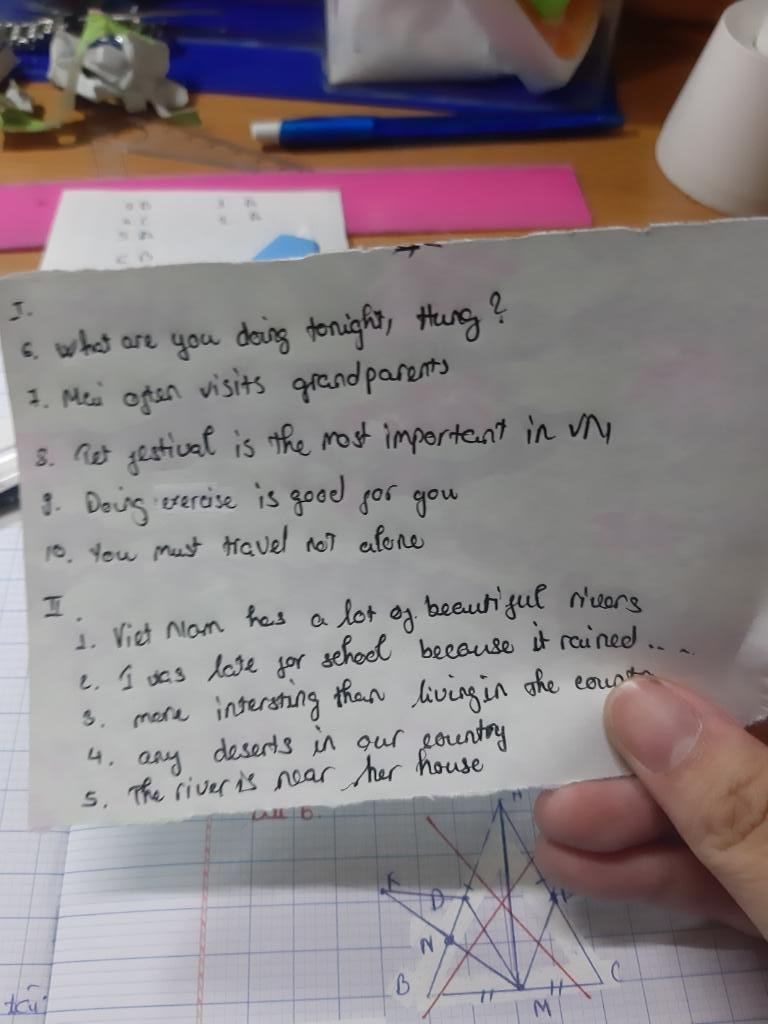 I.
6. What are you doing tonight, Hung?
7. Mei often visits grandparents
8. Tet festival is the most important in VN
9. Doing exercise is good for you
10. You must travel not alone
II.
1. Viet Nam has a lot of beautiful rivers
2. I was late for school because it rained....
3. more intersting than living in the
4. any deserts in our country
5. The river is near her house
K
D
N
B
M
C